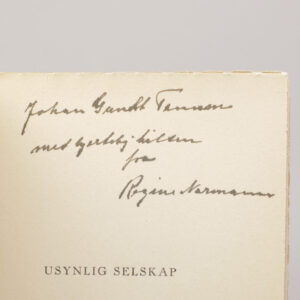 Johan Gundt Tanum
med hjertelig hilsen
fra
Regine Normann
USYNLIG SELSKAP